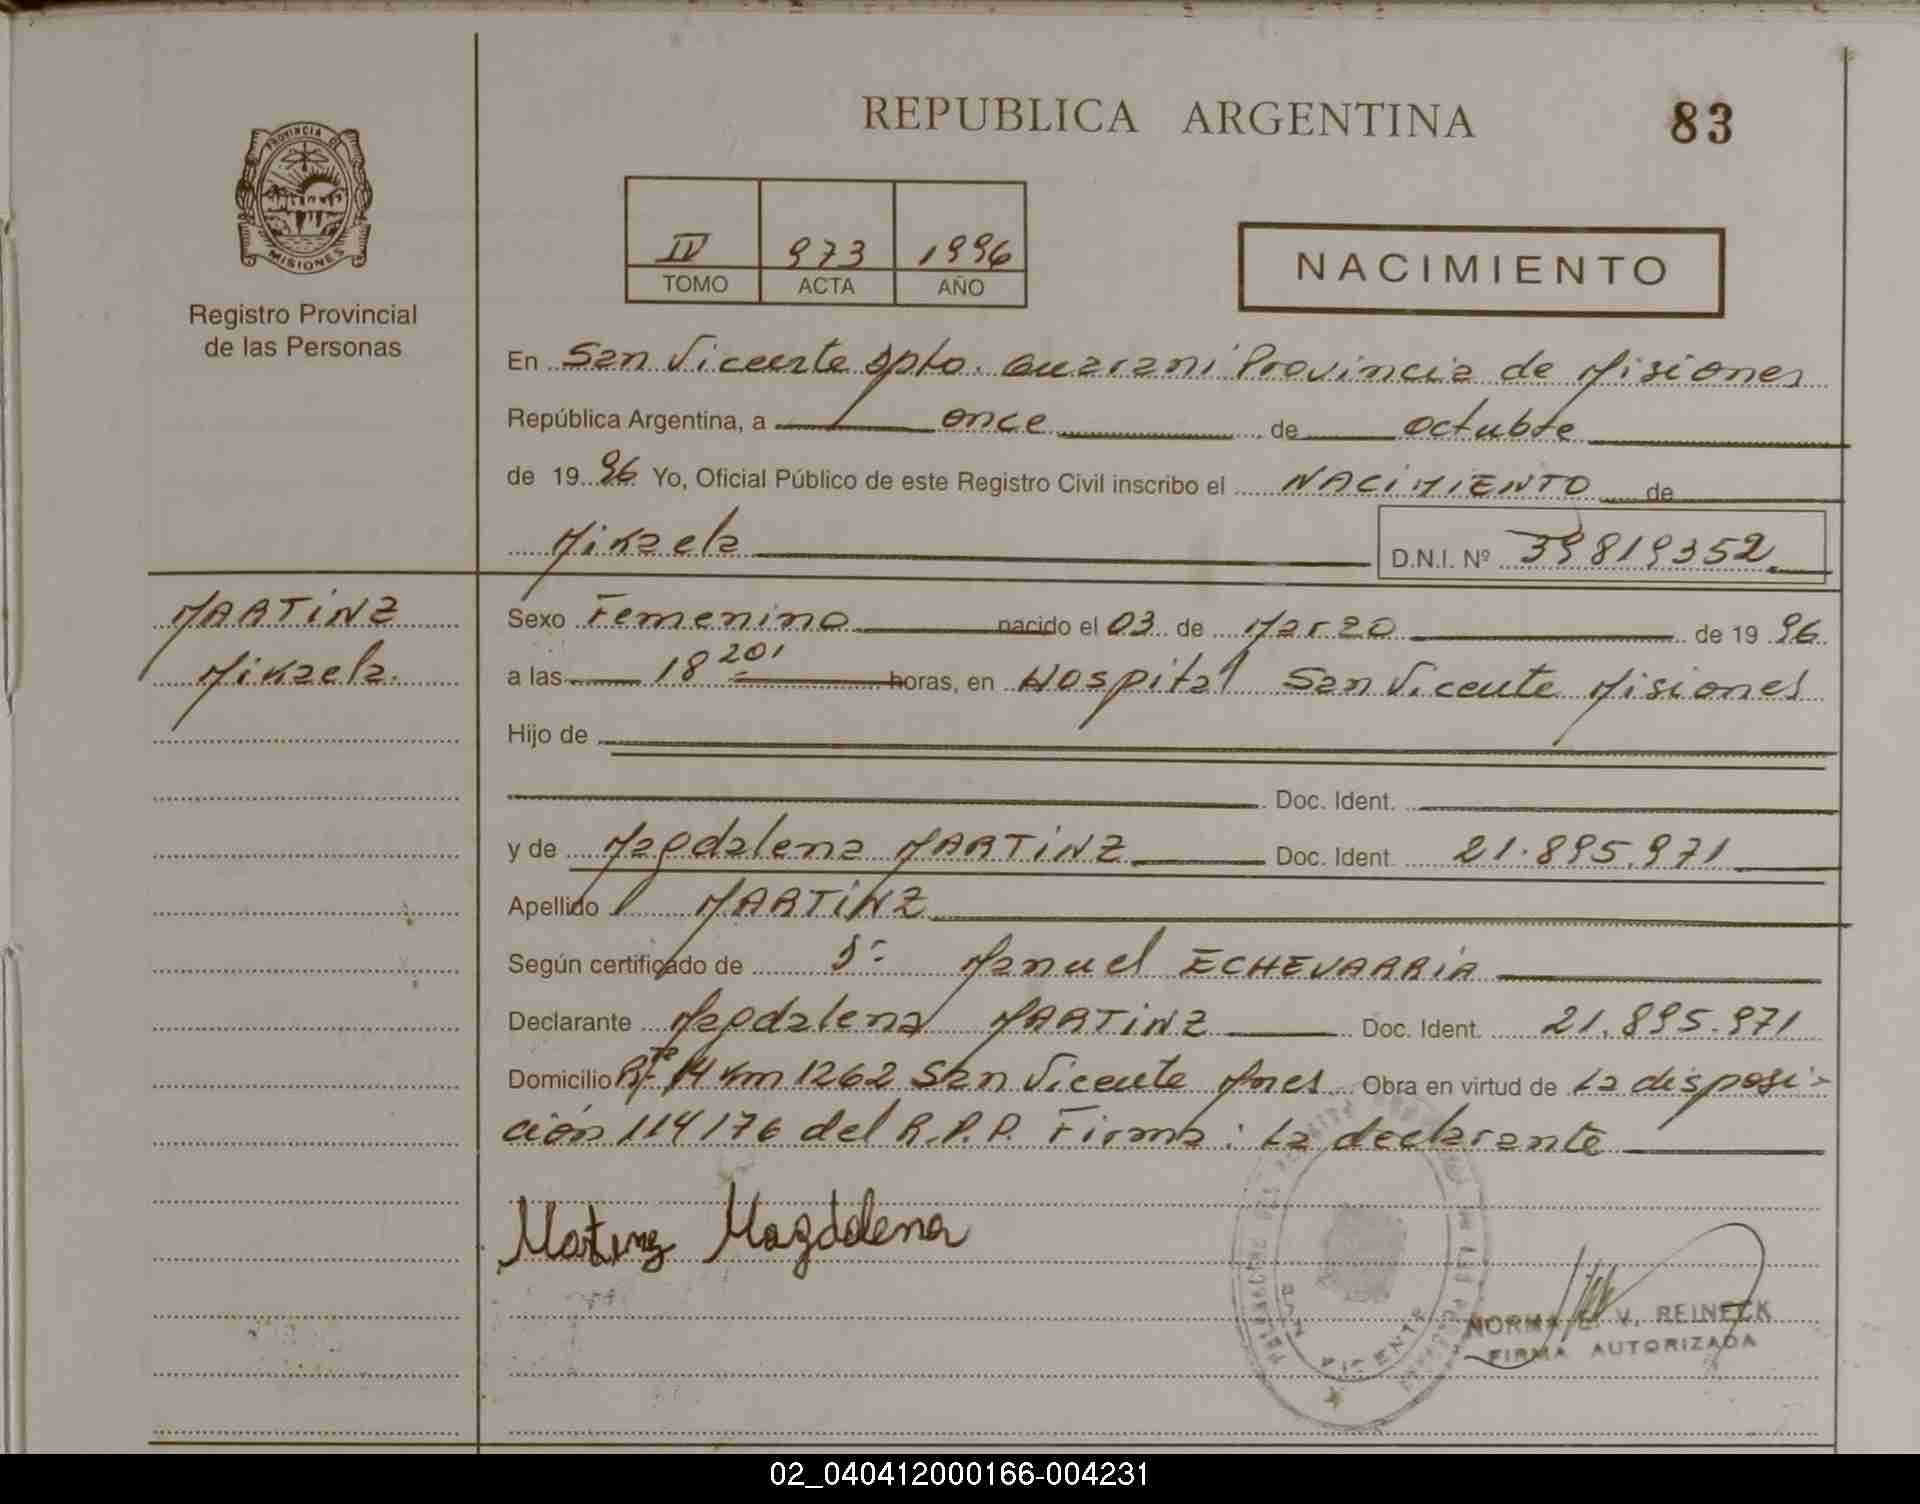 REPUBLICA ARGENTINA
83
PROVINCIA DE
MISIONES
Registro Provincial
de las Personas
IV 973 1996
TOMO ACTA AÑO
NACIMIENTO
En San Vicente Dpto. Guarani Provincia de Misiones
República Argentina, a once de octubre
de 1996 Yo, Oficial Público de este Registro Civil inscribo el NACIMIENTO de
Mikaela D.N.I. Nº 39819352
MARTINZ
Mikaela.
Sexo Femenino nacido el 03 de Marzo de 1996
a las 18 20' horas, en Hospital San Vicente Misiones
Hijo de
Doc. Ident.
y de Magdalena MARTINZ Doc. Ident. 21.895.971
Apellido MARTINZ
Según certificado de Dr. Manuel ECHEVARRIA
Declarante Magdalena MARTINZ Doc. Ident. 21.895.971
Domicilio Rta 14 Km 1262 San Vicente Mnes Obra en virtud de la disposi-
ción 114/76 del R.P.P. Firma: la declarante
Martinz Magdalena
VICENTE
NORMA E. V. REINECK
FIRMA AUTORIZADA
02_040412000166-004231